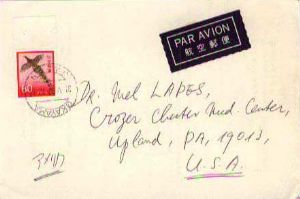 PAR AVION
航空郵便
60
Dr. Mel LAPES,
Crozer Chester Med Center,
Upland, PA, 19013,
U.S.A.